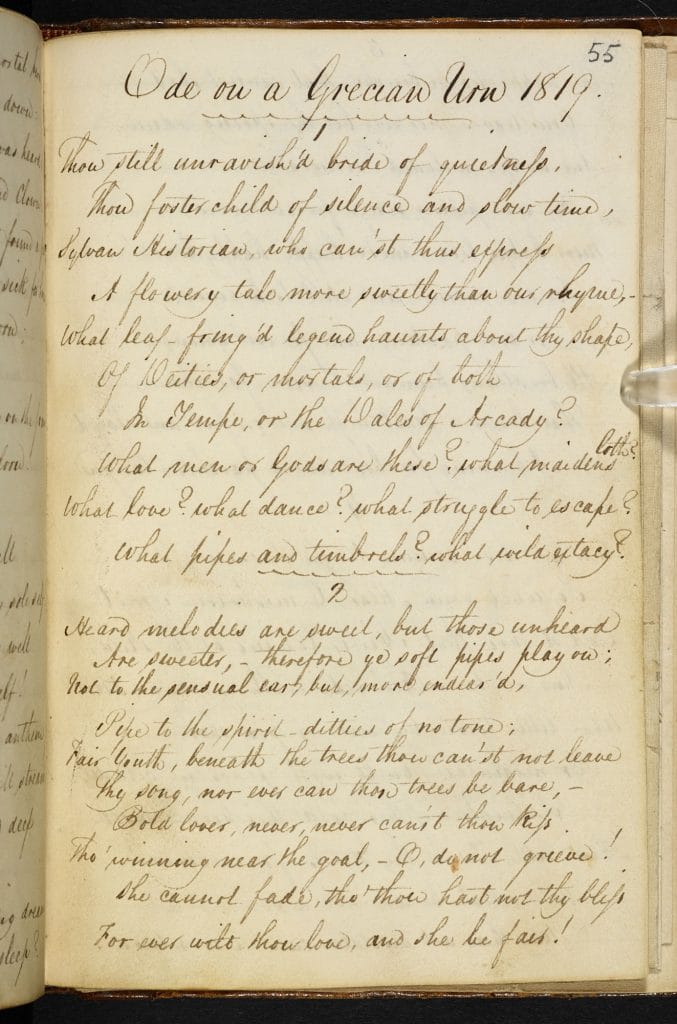 55
Ode on a Grecian Urn 1819.
1
Thou still unravish'd bride of quietness,
Thou foster child of silence and slow time,
Sylvan Historian, who can'st thus express
A flowery tale more sweetly than our rhyme,-
What leaf-fring'd legend haunts about thy shape,
Of Deities, or mortals, or of both
In Tempe, or the Dales of Arcady?
What men or Gods are these? what maidens loth?
What love? what dance? what struggle to escape?
What pipes and timbrels? what wild extacy?
2
Heard melodies are sweet, but those unheard
Are sweeter, - therefore ye soft pipes play on;
Not to the sensual ear, but, more endear'd,
Pipe to the spirit-ditties of no tone;
Fair Youth, beneath the trees thou can'st not leave
Thy song, nor ever can those trees be bare, -
Bold lover, never, never can'st thou kiss
Tho' winning near the goal, - O, do not grieve!
She cannot fade, tho' thou hast not thy bliss
For ever wilt thou love, and she be fair!